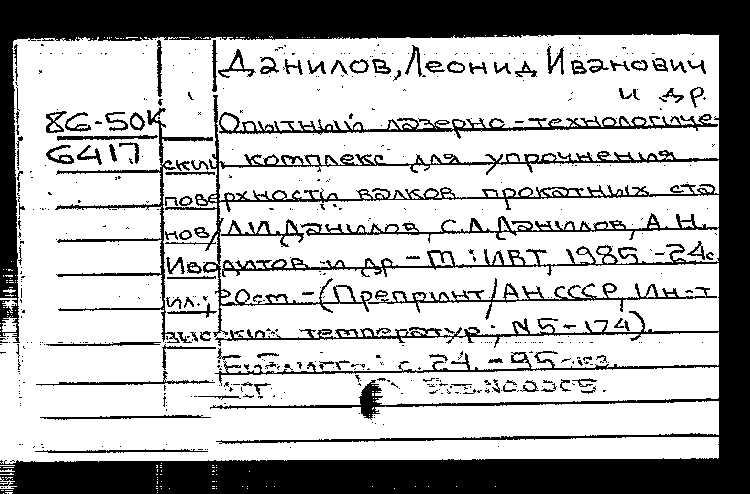 Данилов, Леонид Иванович
и др.
86-50к Опытный лазерно-технологиче-
6417 ский комплекс для упрочнения
поверхности валков прокатных ста
нов/Л.И.Данилов, С.Л.Данилов, А.Н.
и др. - М.: ИВТ, 1985. - 24с.
ил.; 20см. - (Препринт/АН СССР, Ин-т
высоких температур; N5-174).
с. 24. - 95